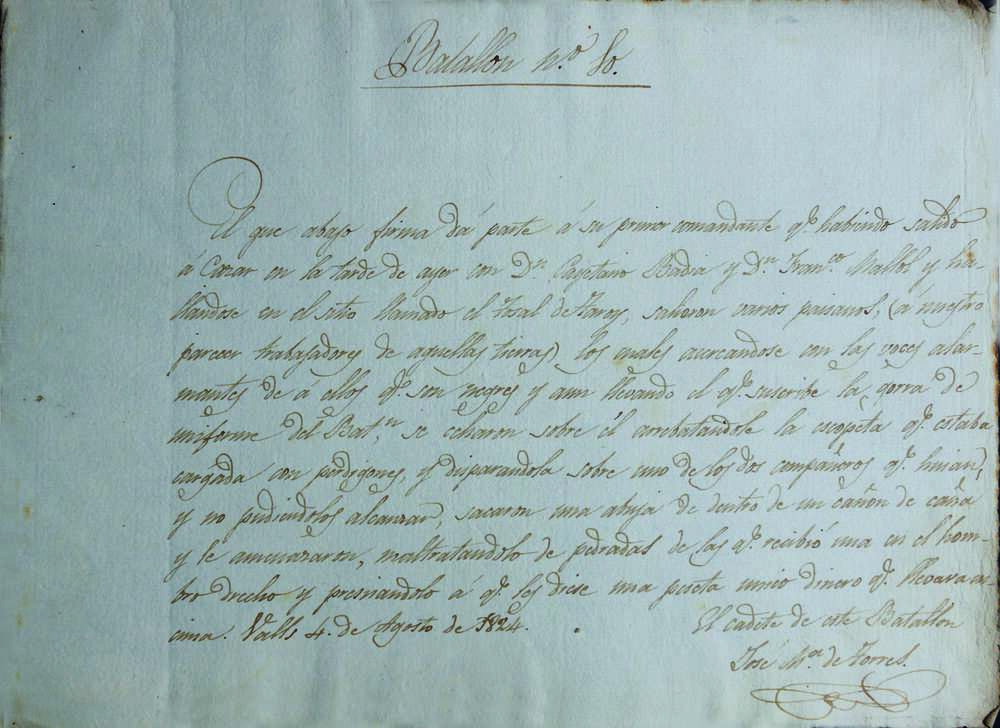 Batallon n.º 8o.
El que abajo firma dá parte á su primer comandante q.e habiendo salido
á Cazar en la tarde de ayer con D.n Cayetano Badia y D.n Fran.co Mallol y ha-
llandose en el sitio llamado el Tosal de Navas, salieron varios paisanos, (á nuestro
parecer trabajadores de aquellas tierras) los cuales acercandose con las voces alar-
mantes de á ellos q.e son negres y aun llevando el q.e suscribe la gorra de
uniforme del Bat.n, se echaron sobre él arrebatandole la escopeta q.e estaba
cargada con perdigones, y disparandola sobre uno de los dos compañeros q.e huian,
y no pudiendolos alcanzar, sacaron una abuja de dentro de un cañon de caña
y le amenazaron, maltratandolo de pedradas de las q.e recibió una en el hom-
bro drecho y precisandolo á q.e les diese una peseta unico dinero q.e llevara en-
cima. Valls 4. de Agosto de 1824.
El cadete de este Batallon
José M.a de Torres.